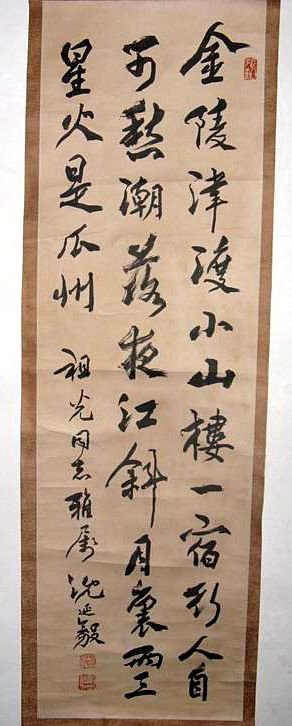 金陵津渡小山樓一宿行人自
可愁潮落夜江斜月裏兩三
星火是瓜州
祖光同志雅屬
沈延毅